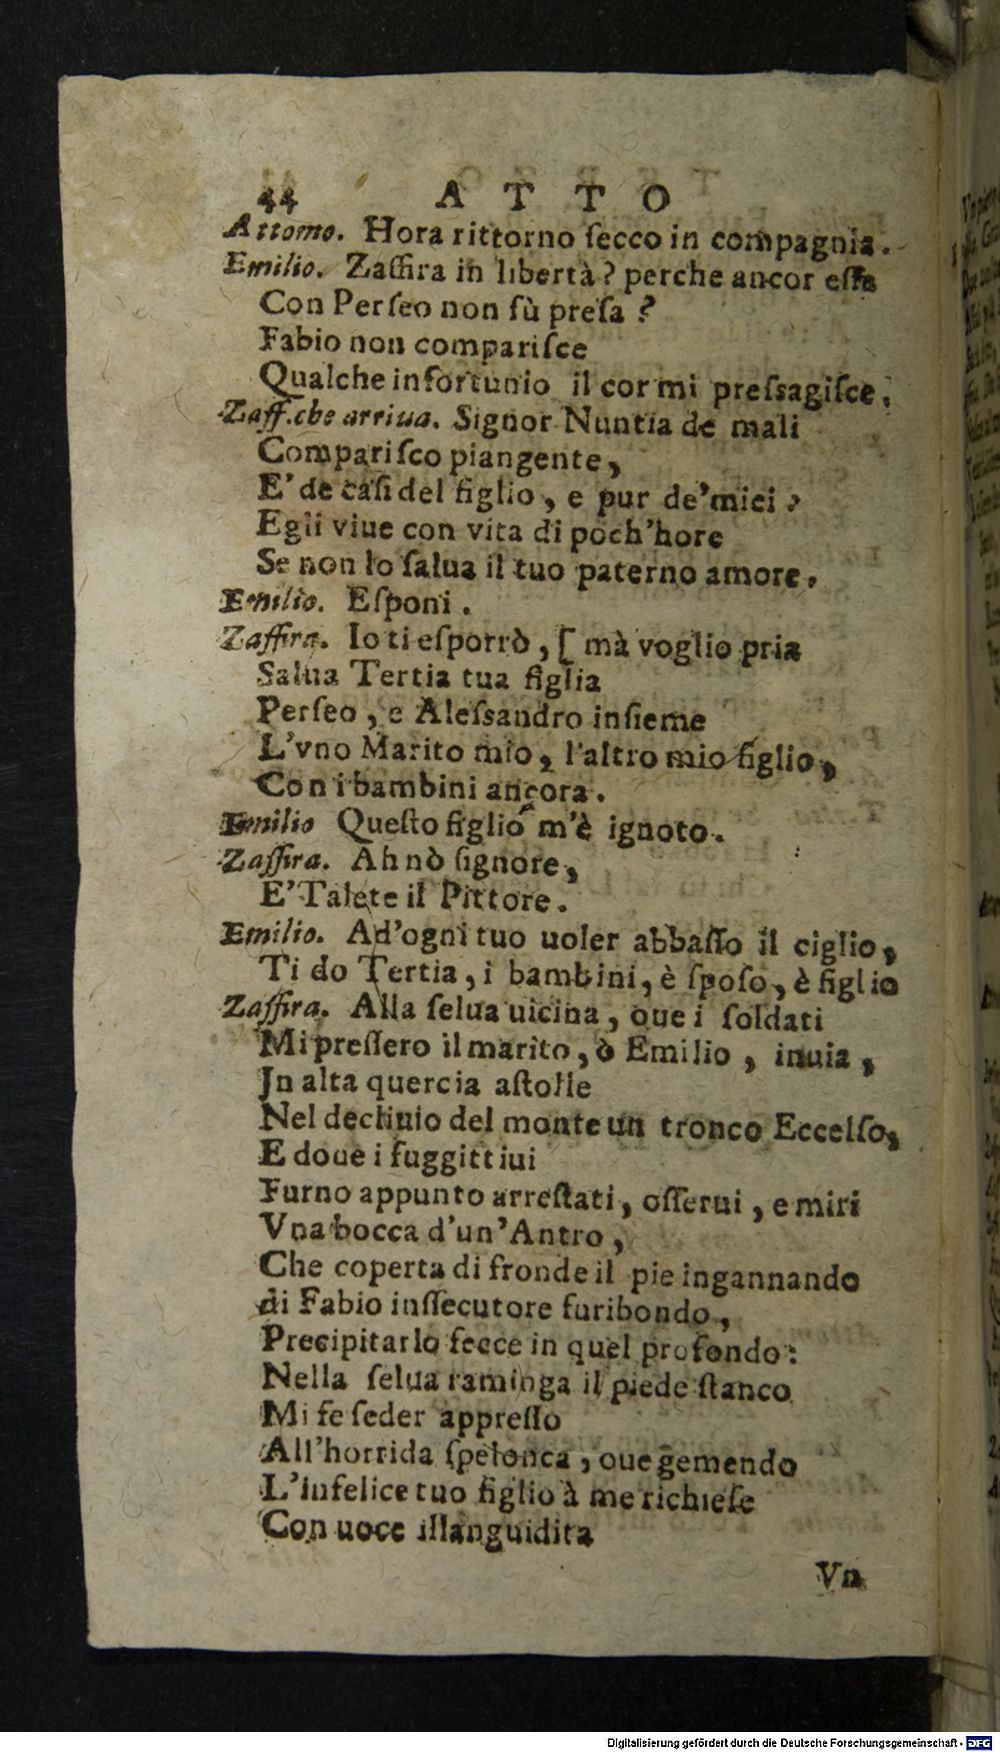 44 ATTO
Attomo. Hora rittorno ſecco in compagnia.
Emilio. Zaffira in libertà? perche ancor eſſa
Con Perſeo non fù preſa?
Fabio non compariſce
Qualche infortunio il cor mi preſsagiſce.
Zaff. che arriua. Signor Nuntia de mali
Compariſco piangente,
E' de caſi del figlio, e pur de'miei?
Egli viue con vita di poch'hore
Se non lo ſalua il tuo paterno amore.
Emilio. Eſponi.
Zaffira. Io ti eſporrò, [ mà voglio pria
Salua Tertia tua figlia
Perſeo, e Aleſsandro inſieme
L'vno Marito mio, l'altro mio figlio,
Con i bambini ancora.
Emilio Queſto figlio m'è ignoto.
Zaffira. Ah nò ſignore,
E' Talete il Pittore.
Emilio. Ad'ogni tuo uoler abbaſſo il ciglio,
Ti do Tertia, i bambini, è ſpoſo, è figlio
Zaffira. Alla ſelua uicina, oue i ſoldati
Mi preſſero il marito, ò Emilio, inuia,
In alta quercia aſtolle
Nel decliuio del monte un tronco Eccelſo,
E doue i fuggittiui
Furno appunto arreſtati, oſſerui, e miri
Vna bocca d'un'Antro,
Che coperta di fronde il pie ingannando
di Fabio inſſecutore furibondo,
Precipitarlo fecce in quel profondo:
Nella ſelua raminga il piede ſtanco
Mi fe ſeder appreſſo
All'horrida ſpelonca, oue gemendo
L'infelice tuo figlio à me richieſe
Con uoce illanguidita
Vn
Digitalisierung gefördert durch die Deutsche Forschungsgemeinschaft - DFG